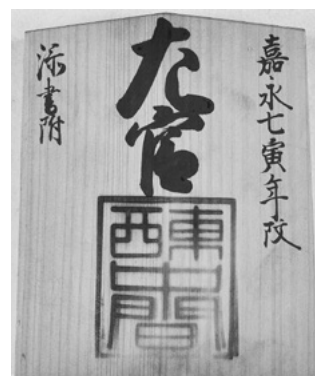 嘉永七寅年改
大官
東西
添書附